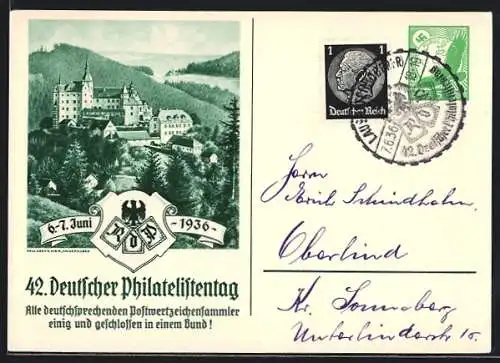 6.-7. Juni
1936
RDP
42. Deutscher Philatelistentag
Alle deutschsprechenden Postwertzeichensammler
einig und geschlossen in einem Bund!
1 1
Deutsches Reich
7.6.36
42. Deutscher
Herrn
Erich Schindhelm
Oberlind
Kr. Sonneberg
Unterlinderstr.